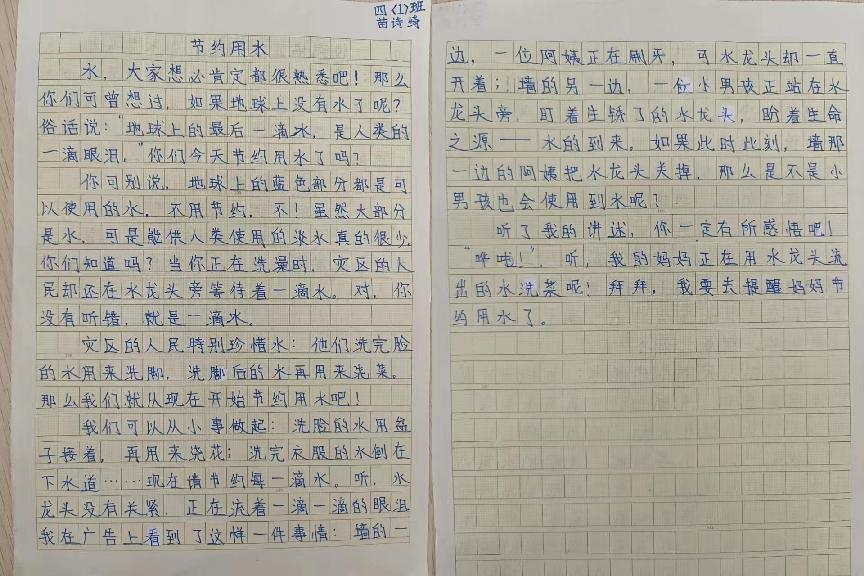 四(1)班
苗诗绮
节约用水
水，大家想必肯定都很熟悉吧！那么
你们可曾想过，如果地球上没有水了呢？
俗话说：“地球上的最后一滴水，是人类的
一滴眼泪。”你们今天节约用水了吗？
你可别说，地球上的蓝色部分都是可
以使用的水，不用节约，不！虽然大部分
是水，可是能供人类使用的淡水真的很少，
你们知道吗？当你正在洗澡时，灾区的人
民却还在水龙头旁等待着一滴水。对，你
没有听错，就是一滴水。
灾区的人民特别珍惜水：他们洗完脸
的水用来洗脚，洗脚后的水再用来浇菜。
那么我们就从现在开始节约用水吧！
我们可以从小事做起：洗脸的水用盆
子接着，再用来浇花；洗完衣服的水倒在
下水道……现在请节约每一滴水。听，水
龙头没有关紧，正在流着一滴一滴的眼泪
我在广告上看到了这样一件事情：墙的一
边，一位阿姨正在刷牙，可水龙头却一直
开着；墙的另一边，一位小男孩正站在水
龙头旁，盯着生锈了的水龙头，盼着生命
之源——水的到来。如果此时此刻，墙那
一边的阿姨把水龙头关掉，那么是不是小
男孩也会使用到水呢？
听了我的讲述，你一定有所感悟吧！
“哗啦！”，听，我的妈妈正在用水龙头流
出的水洗菜呢！拜拜，我要去提醒妈妈节
约用水了。